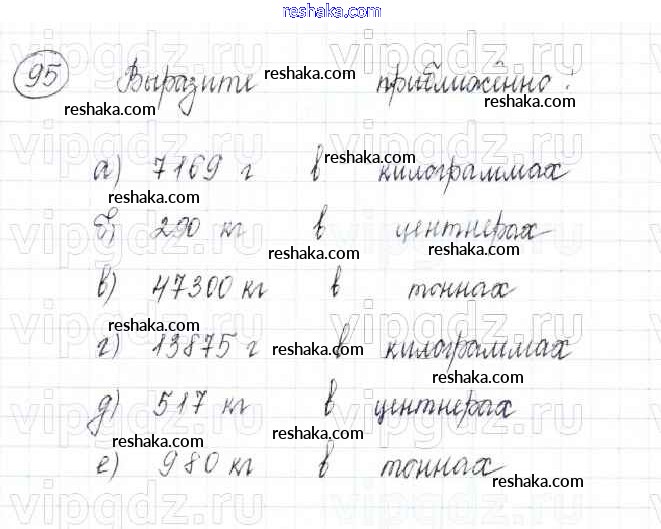 reshaka.com
95 Выразите reshaka.com приближённо:
reshaka.com
а) 7169 г в килограммах
reshaka.com
б) 290 кг в центнерах
reshaka.com
в) 47300 кг в тоннах
reshaka.com
г) 13875 г reshaka.com в килограммах
reshaka.com
д) 517 кг в центнерах
reshaka.com
е) 980 кг в тоннах
reshaka.com
vipgdz.ru